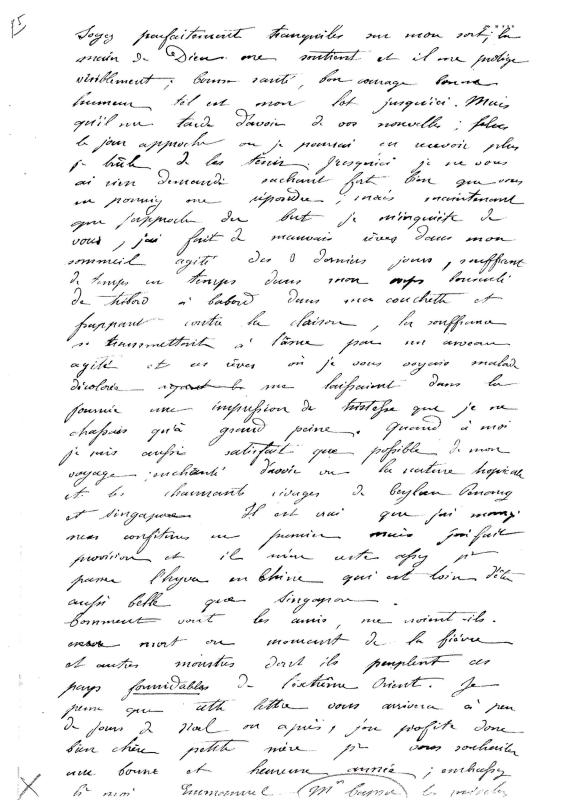 15
Soyez parfaitement tranquilles sur mon sort, la
main de Dieu me soutient et il me protège
visiblement ; bonne santé, bon courage bonne
humeur tel est mon lot jusqu'ici. Mais
qu'il me tarde d'avoir de vos nouvelles ; plus
le jour approche ou je pourrai en recevoir plus
je brûle de les tenir. Jusqu'ici je ne vous
ai rien demandé sachant fort bien que vous
ne pouviez me répondre ; mais maintenant
que j'approche du but je m'inquiète de
vous, j'ai fait de mauvais rêves dans mon
sommeil agité des 8 derniers jours, souffrant
de temps en temps dans mon corps bousculé
de tribord à babord dans ma couchette et
frappant contre la cloison, la souffrance
se transmettait à l'âme par un cerveau
agité et ces rêves où je vous voyais malade
décolorée me laissaient dans la
journée une impression de tristesse que je ne
chassais qu'à grand peine. Quand à moi
je suis aussi satisfait que possible de mon
voyage ; enchanté d'avoir vu la nature tropicale
et les charmants rivages de Ceylan Penang
et Singapore Il est vrai que j'ai mangé
mes confitures en premier mais j'ai fait
provision et il m'en reste assez pr
passer l'hyver en Chine qui est loin d'être
aussi belle que Singapour.
Comment vont les amis, me voient-ils
encore mort ou moment de la fièvre
et autres monstres dont ils peuplent ces
pays formidables de l'extrême Orient. Je
pense que cette lettre vous arrivera à peu
de jours de Noël ou après, j'en profite donc
bien chère petite mère pr vous souhaiter
une bonne et heureuse année ; embrassez
Emmanuel Mr